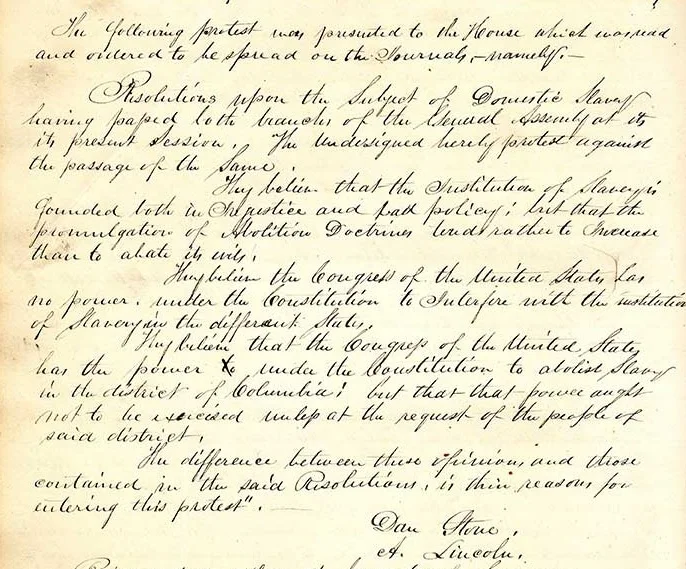 The following protest was presented to the House which was read
and ordered to be spread on the Journals,—namely.—
Resolutions upon the Subject of Domestic Slavery
having passed both branches of the General Assembly at its
its present Session. The undersigned hereby protest against
the passage of the Same.
They believe that the Institution of Slavery is
founded both in Injustice and bad policy; but that the
promulgation of Abolition Doctrines tend rather to Increase
than to abate its evils.
They believe the Congress of the United States has
no power. under the Constitution to Interfere with the institution
of Slavery in the different States.
They believe that the Congress of the United States
has the power under the Constitution to abolish Slavery
in the district of Columbia; but that that power ought
not to be exercised unless at the request of the people of
said district.
The difference between these opinions and those
contained in the said Resolutions, is their reasons for
entering this protest".—
Dan Stone.
A. Lincoln.